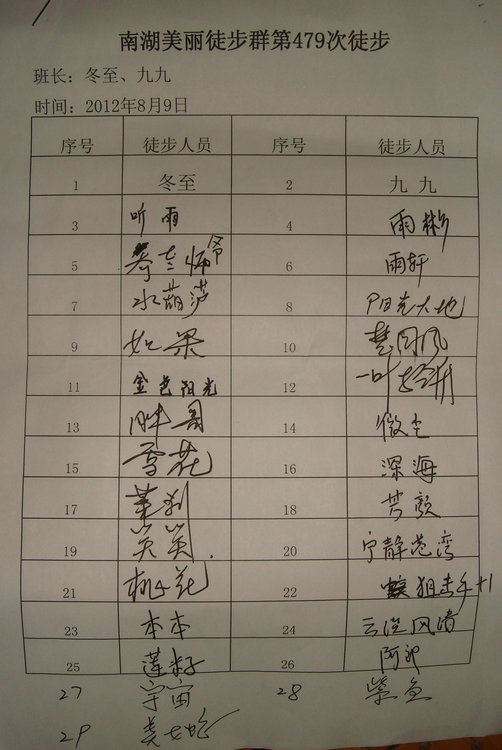 南湖美丽徒步群第479次徒步
班长：冬至、九九
时间：2012年8月9日
序号 徒步人员 序号 徒步人员
1 冬至 2 九九
3 听雨 4 雨彬
5 6 雨轩
7 水葫芦 8 阳光大地
9 如果 10
11 金色阳光 12 一叶轻舟
13 胖哥 14 微尘
15 雪花 16 深海
17 茉莉 18
19 笑笑 20 宁静港湾
21 桃花 22 狙击手+1
23 本本 24 云淡风清
25 莲籽 26
27 宇宙 28 紫鱼
29